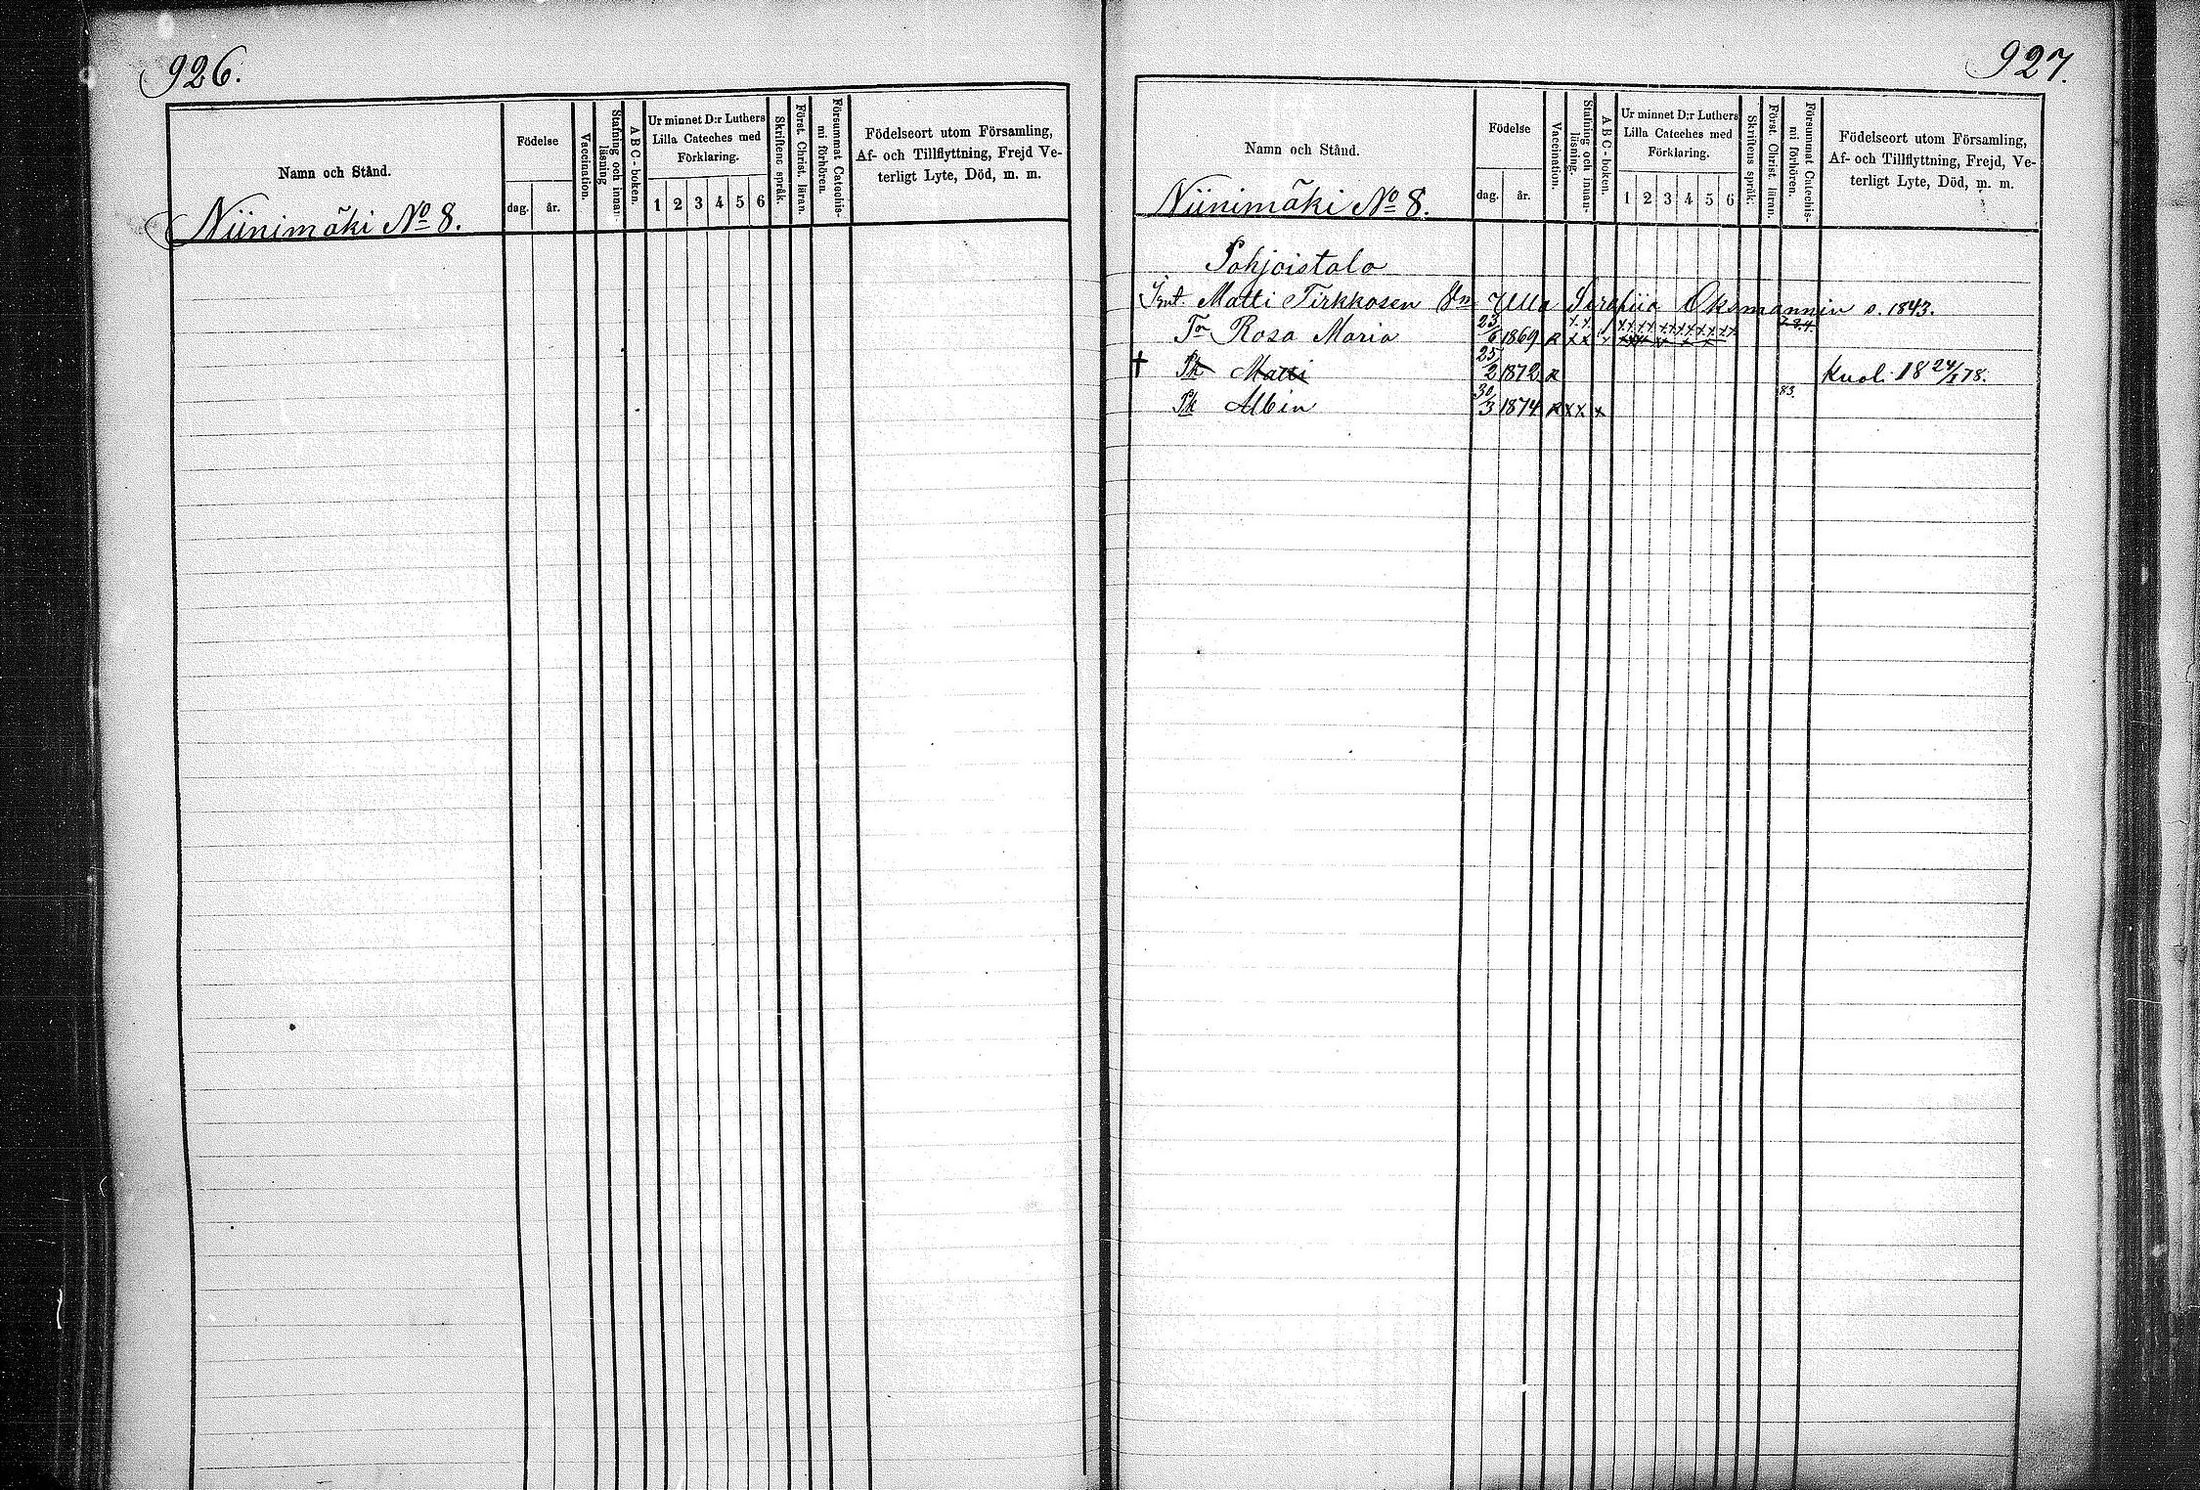 926.
Namn och Stånd.
Niinimäki No 8.
Födelse
dag. år.
Vaccination.
Stafning och innan-
läsning
ABC-boken.
Ur minnet D:r Luthers
Lilla Cateches med
Förklaring.
1 2 3 4 5 6
Skriftenc språk.
Först. Christ. läran.
Försummat Catechis-
mi förhören.
Födelseort utom Församling,
Af- och Tillflyttning, Frejd Ve-
terligt Lyte, Död, m. m.
927.
Namn och Stånd.
Niinimäki No 8.
Födelse
dag. år.
Vaccination.
Stafning och innan-
läsning.
ABC-boken.
Ur minnet D:r Luthers
Lilla Cateches med
Förklaring.
1 2 3 4 5 6
Skriftens språk.
Först. Christ. läran.
Försummat Catechis-
mi förhören.
Födelseort utom Församling,
Af- och Tillflyttning, Frejd, Ve-
terligt Lyte, Död, m. m.
Pohjoistalo
Matti Tirkkosen Vm Ulla Serafiia Oksmannin s. 1843.
Tr Rosa Maria 23/6 1869 R x x
† Pk Matti 25/2 1872 R Kuoli 18 24/1 78.
Pk Albin 30/3 1874 R x x x 83.